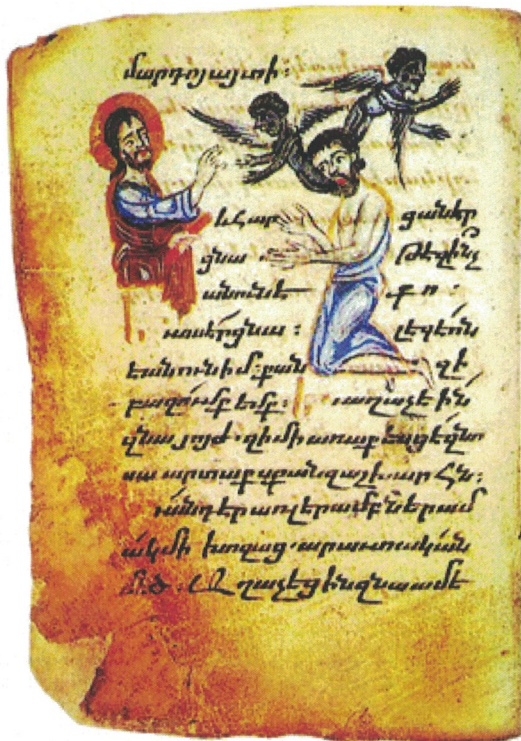 մարդոյայտի։
եւհար ցանէր
ցնա թէզինչ
անունէ քո։
ասէրցնա։ լեգէոն
էանունիմ։ քան զի
բազումքեմք։ աղաչէին
զնայոյժ. զիմիառաքեսցէզնո
սաարտաքսքանզաշխարհն։
անդէրառլերամբներամ
ակմի խոզաց.արածական
մծ։ Աղաչեցինզնաամե